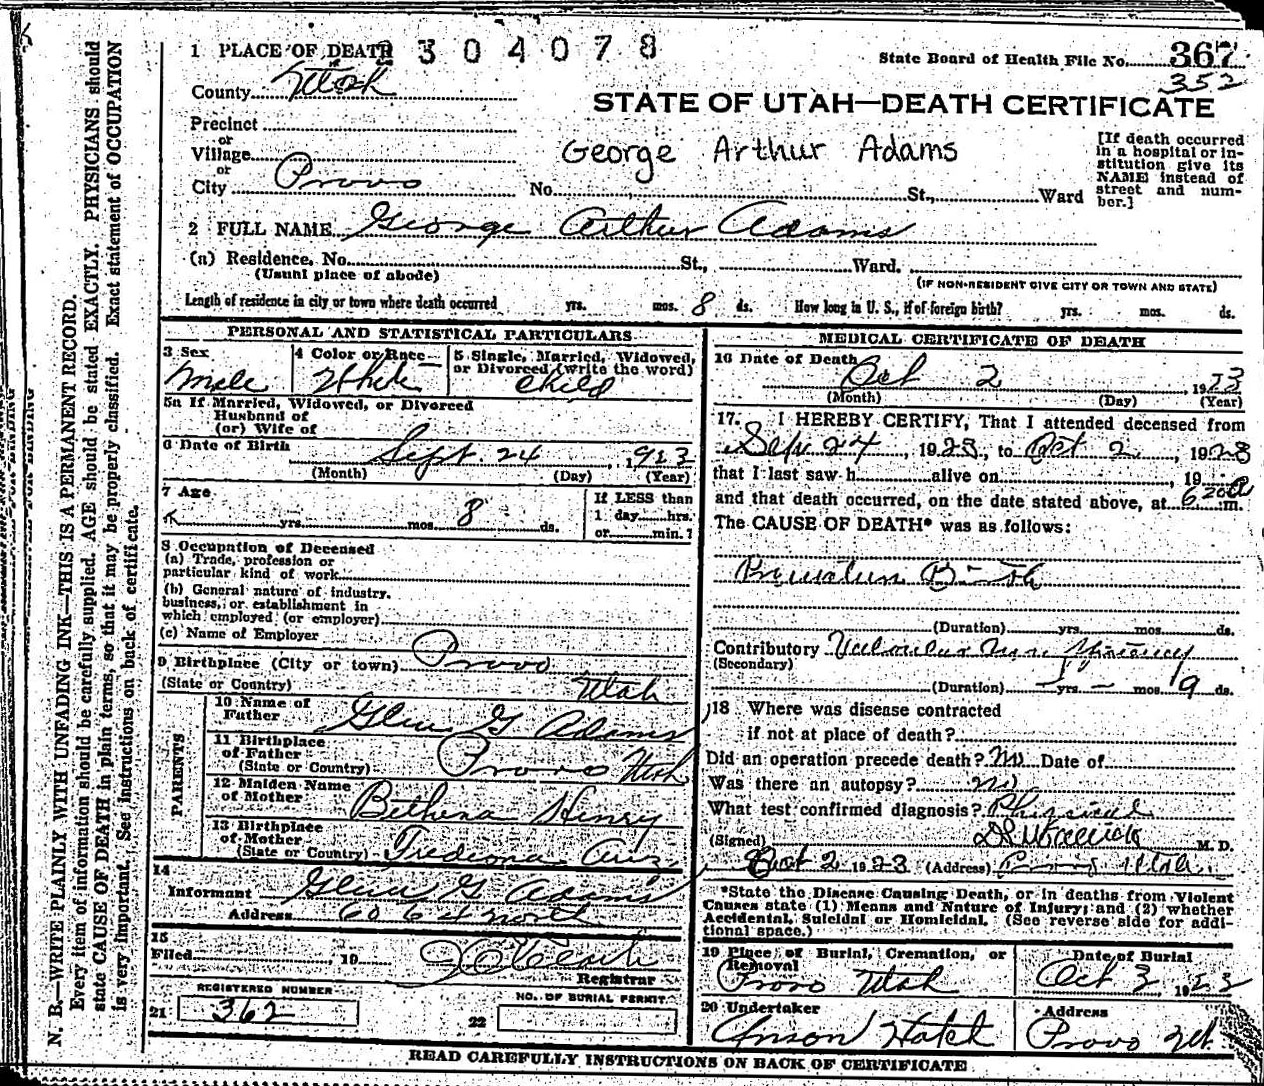 1 PLACE OF DEATH 2304078
State Board of Health File No. 367
352
County Utah
STATE OF UTAH—DEATH CERTIFICATE
Precinct
or
Village
George Arthur Adams
[If death occurred in a hospital or institution give its NAME instead of street and number.]
or
City Provo No. St., Ward
2 FULL NAME George Arthur Adams
(a) Residence, No. St., Ward.
(Usual place of abode) (IF NON-RESIDENT GIVE CITY OR TOWN AND STATE)
Length of residence in city or town where death occurred yrs. mos. 8 ds. How long in U. S., if of foreign birth? yrs. mos. ds.
PERSONAL AND STATISTICAL PARTICULARS
3 Sex
Male
4 Color or Race
White
5 Single, Married, Widowed, or Divorced (write the word)
Child
5a If Married, Widowed, or Divorced
Husband of
(or) Wife of
6 Date of Birth Sept. 24, 1923
(Month) (Day) (Year)
7 Age
yrs. mos. 8 ds.
If LESS than
1 day hrs.
or min.?
8 Occupation of Deceased
(a) Trade, profession or
particular kind of work
(b) General nature of industry,
business, or establishment in
which employed (or employer)
(c) Name of Employer
9 Birthplace (City or town) Provo
(State or Country) Utah
PARENTS
10 Name of
Father Glen G Adams
11 Birthplace
of Father
(State or Country) Provo Utah
12 Maiden Name
of Mother Bethena Henry
13 Birthplace
of Mother
(State or Country) Frediona Ariz
14
Informant Glen G Adams
Address 60 6 W North
15
Filed, 19
Registrar
REGISTERED NUMBER
21 362
NO. OF BURIAL PERMIT
22
MEDICAL CERTIFICATE OF DEATH
16 Date of Death
Oct 2 1923
(Month) (Day) (Year)
17. I HEREBY CERTIFY, That I attended deceased from
Sept 24, 1923, to Oct 2, 1923
that I last saw h alive on, 19
and that death occurred, on the date stated above, at 620a m.
The CAUSE OF DEATH* was as follows:
Premature Birth
(Duration) yrs. mos. ds.
Contributory Valvular
(Secondary)
(Duration) — yrs. — mos. 9 ds.
18 Where was disease contracted
if not at place of death?
Did an operation precede death? No Date of
Was there an autopsy? no
What test confirmed diagnosis? Physical
(Signed) M. D.
Oct 2 1923 (Address) Provo Utah
*State the Disease Causing Death, or in deaths from Violent
Causes state (1) Means and Nature of Injury; and (2) whether
Accidental, Suicidal or Homicidal. (See reverse side for additional space.)
19 Place of Burial, Cremation, or
Removal
Provo Utah
Date of Burial
Oct 3, 1923
20 Undertaker
Anson Hatch
Address
Provo Ut.
READ CAREFULLY INSTRUCTIONS ON BACK OF CERTIFICATE
N. B.—WRITE PLAINLY WITH UNFADING INK—THIS IS A PERMANENT RECORD.
Every item of information should be carefully supplied. AGE should be stated EXACTLY. PHYSICIANS should
state CAUSE OF DEATH in plain terms, so that it may be properly classified. Exact statement of OCCUPATION
is very important. See instructions on back of certificate.